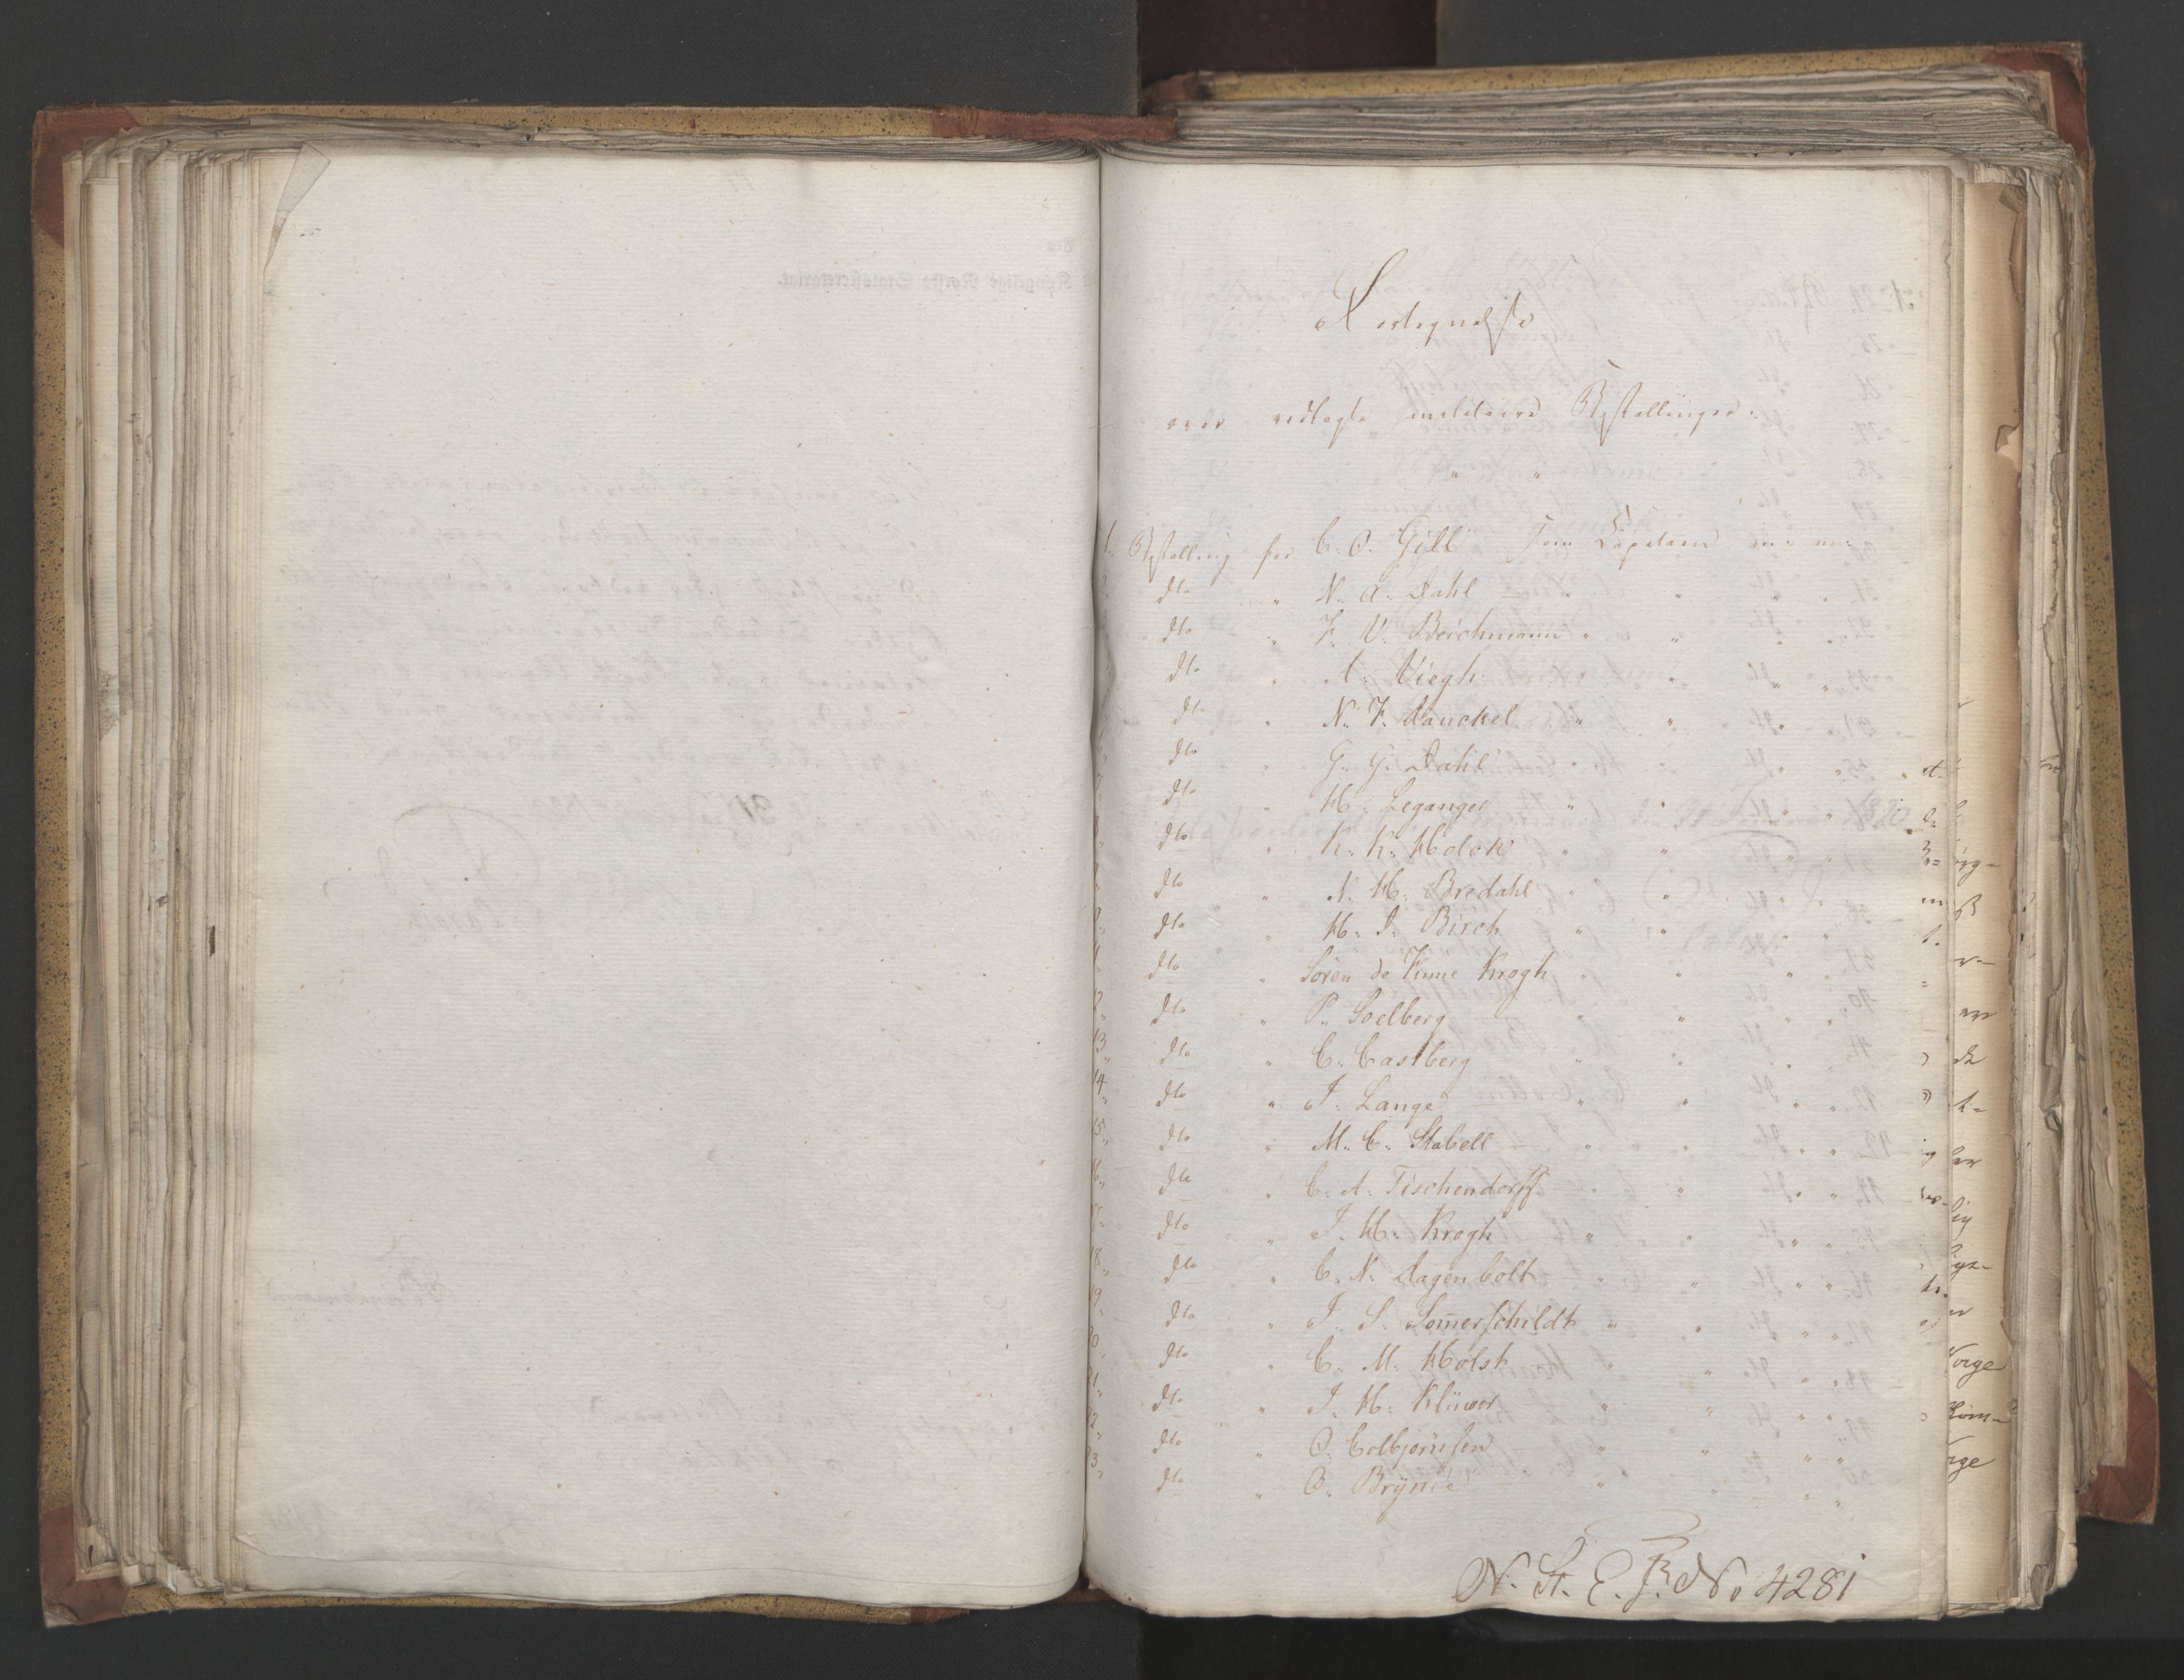 Fortegnelse
over vedlagte militaire Bestallinger:
1. Bestalling for C. O. Gill som Capitain
dto " N. A. Dahl " "
dto " F. V. Beichmann " "
dto " A. Viegh " "
dto " N. F. Lanckel " "
6 dto " G. G. Dahl " "
dto " H. Leganger " "
dto " K. K. Holck " "
dto " N. H. Bredahl " "
dto " H. J. Birch " "
11 dto " Sören de Finne Krogh " "
12 " dto " P. Soelberg " "
13 " dto " C. Castberg " "
14 " dto " J. Lange " "
15 " dto " M. C. Stabell " "
16 " dto " C. A. Tischendorff " "
dto " J. H. Krogh " "
18 " dto " C. N. Lagenbolt " "
19 " dto " J. S. Som̄erschildt " "
20 " dto " C. M. Holst " "
21 " dto " J. H. Klüwer " "
22 " dto " O. Colbjörnsen " "
23 " dto " O. Brÿnie " "
N. St. E. Pr. No. 4281